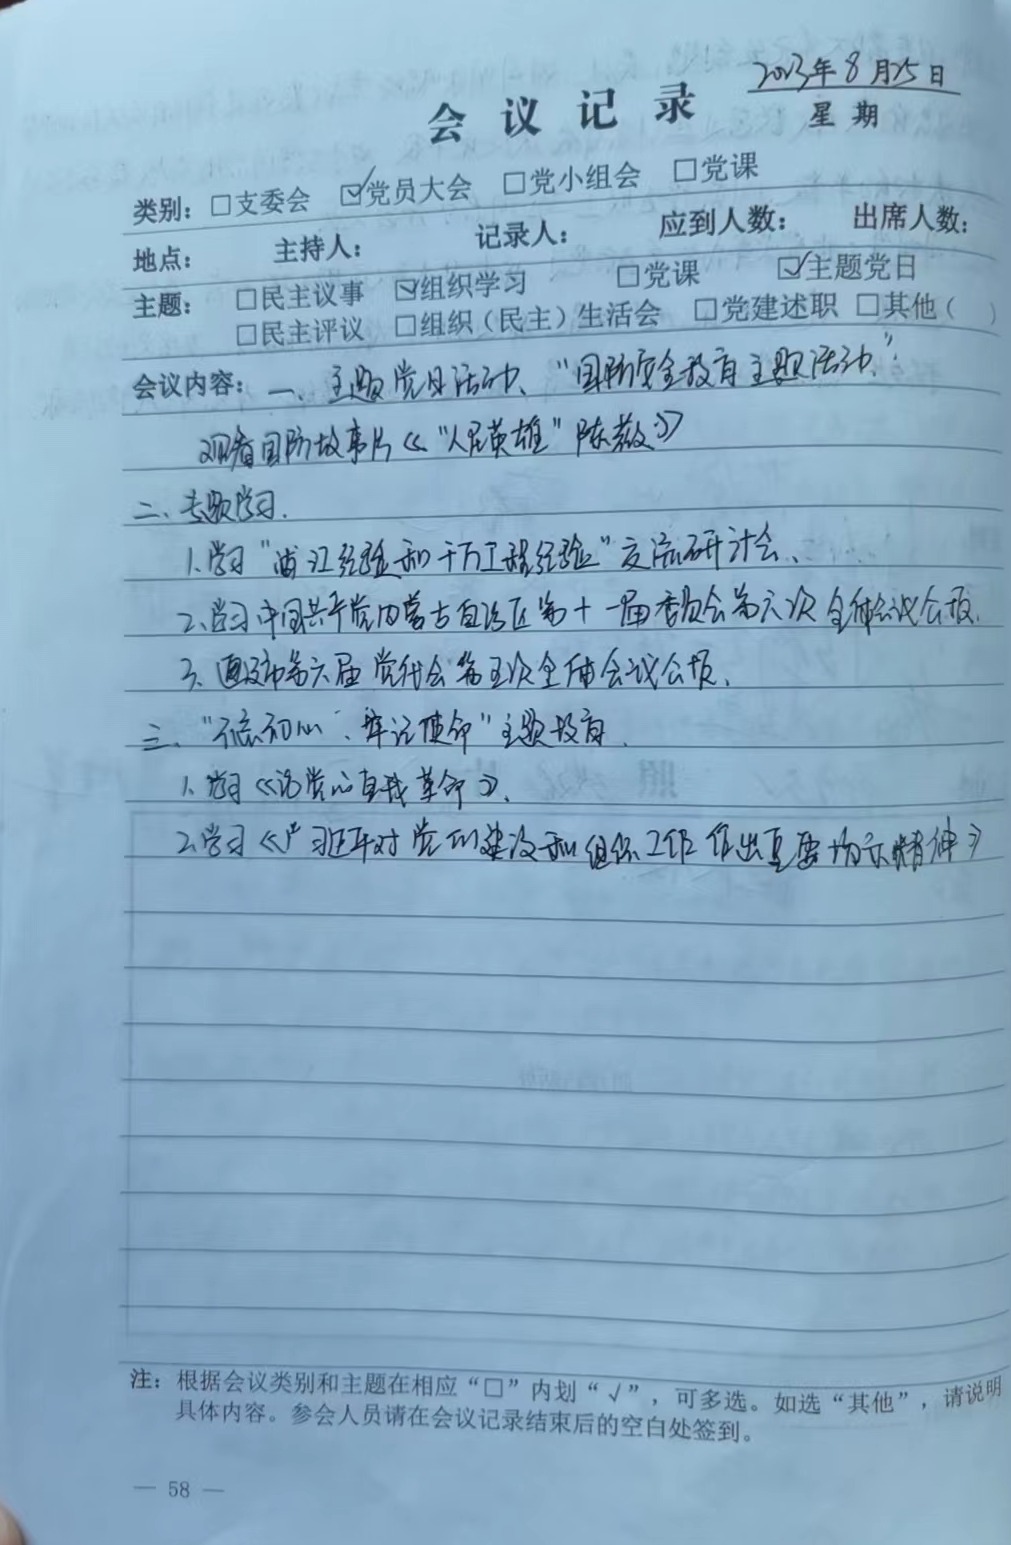 2023年8月25日
会议记录
星期
类别：□支委会 ☑党员大会 □党小组会 □党课
地点： 主持人： 记录人： 应到人数： 出席人数：
主题：□民主议事 ☑组织学习 □党课 ☑主题党日
□民主评议 □组织（民主）生活会 □党建述职 □其他（ ）
会议内容：一、主题党日活动、“国防安全教育主题活动”.
观看国防故事片《“人民英雄”陈薇》
二、专题学习.
1.学习“浦江经验和千万工程经验”交流研讨会、
2、学习中国共产党内蒙古自治区第十一届委员会第六次全体会议公报.
3、通辽市第六届党代会第五次全体会议公报.
三、“不忘初心、牢记使命”主题教育.
1、学习《论党的自我革命》.
2.学习《习近平对党的建设和组织工作作出重要指示精神》
注：根据会议类别和主题在相应“□”内划“√”，可多选。如选“其他”，请说明
具体内容。参会人员请在会议记录结束后的空白处签到。
— 58 —